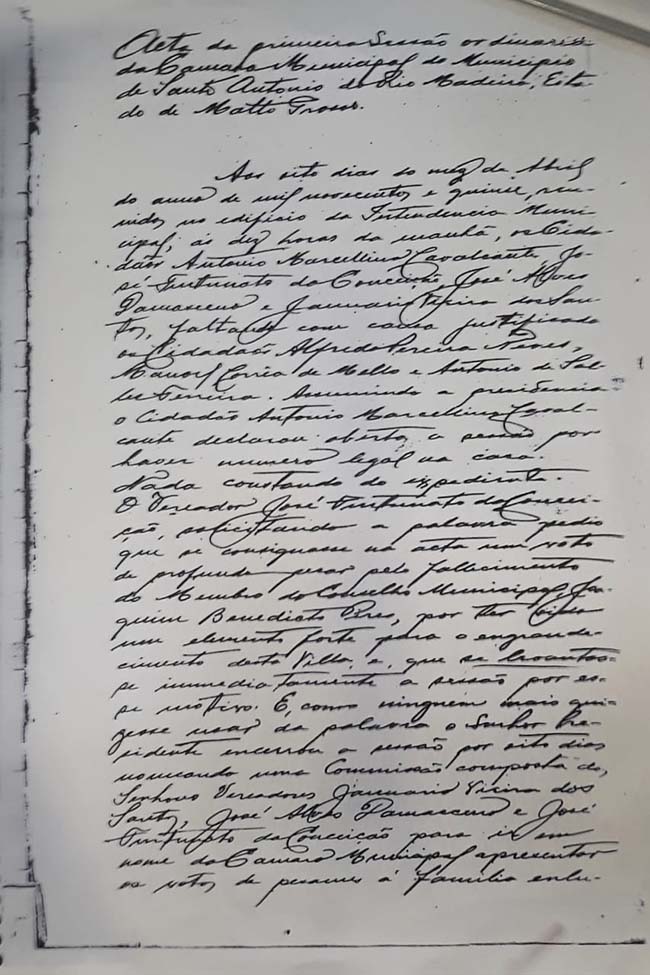 Acta da primeira Sessão ordinaria
da Camara Municipal do Municipio
de Santo Antonio do Rio Madeira, Esta
do de Matto Grosso.
Aos oito dias do mez de Abril
do anno de mil novecentos e quinse, reu-
nidos no edificio da Intendencia Muni-
cipal, ás dez horas da manhã, os Cida-
dãos Antonio Marcellino Cavalcante, Jo-
sé Furtunato da Conceição, José Alves
Damasceno e Januario Vieira dos San-
tos, faltando com causa justificada
os Cidadãos Alfredo Pereira Neves,
Manoel Corrêa de Mello e Antonio de Sal-
les Ferreira. Assumindo a presidencia
o Cidadão Antonio Marcellino Caval-
cante declarou aberta a sessão por
haver numero legal na casa.
Nada constando do expediente.
O Vereador José Furtunato da Concei-
ção, solicitando a palavra pedio
que se consignasse na acta um voto
de profundo pesar pelo fallecimento
do Membro do Conselho Municipal, Joa-
quim Benedicto Pires, por ter sido
um elemento forte para o engrande-
cimento desta Villa, e, que se levantas-
se immediatamente a sessão por es-
se motivo. E, como ninguem mais qui-
zesse usar da palavra o Senhor Pre-
sidente encerrou a sessão por oito dias
nomeando uma Commissão composta dos
Senhores Vereadores Januario Vieira dos
Santos, José Alves Damasceno e José
Furtunato da Conceição para ir em
nome da Camara Municipal apresentar
os votos de pesames á familia enlu-